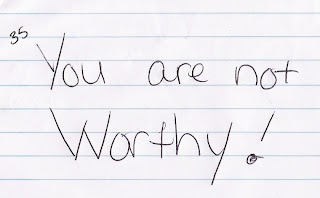 35
You are not
Worthy.!